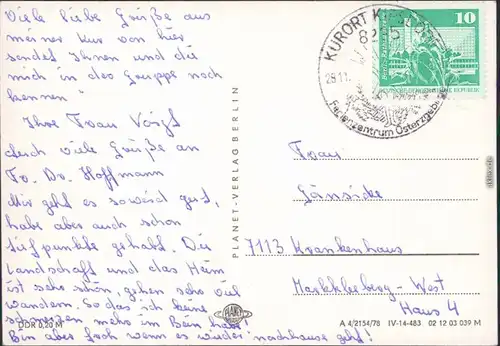 Viele liebe Grüße aus
meiner Kur von hier
sendet Ihnen und die
mich in des Gruppe noch
kennen"
Ihre Frau Voigt
auch viele Grüße an
Fr. Dr. Hoffmann
Mir geht es soweid gut,
habe aber auch schon
tiefpunkte gehabt. Die
Landschaft und das Heim
ist sehr schön, gehen sehr viel
wandern. So das ich keine
schmerzen mehr im Bein habe!
Bin aber froh wenn es wieder nachhause geht!
DDR 0,20 M
PLANET-VERLAG BERLIN
PLANET
KURORT
8235
28.11.
Ferienzentrum Osterzgebirge
10
DEUTSCHE DEMOKRATISCHE REPUBLIK
Frau
Gänsicke
7113 Krankenhaus
Markkleeberg-West
Haus 4
A 4/2154/78 IV-14-483 02 12 03 039 M